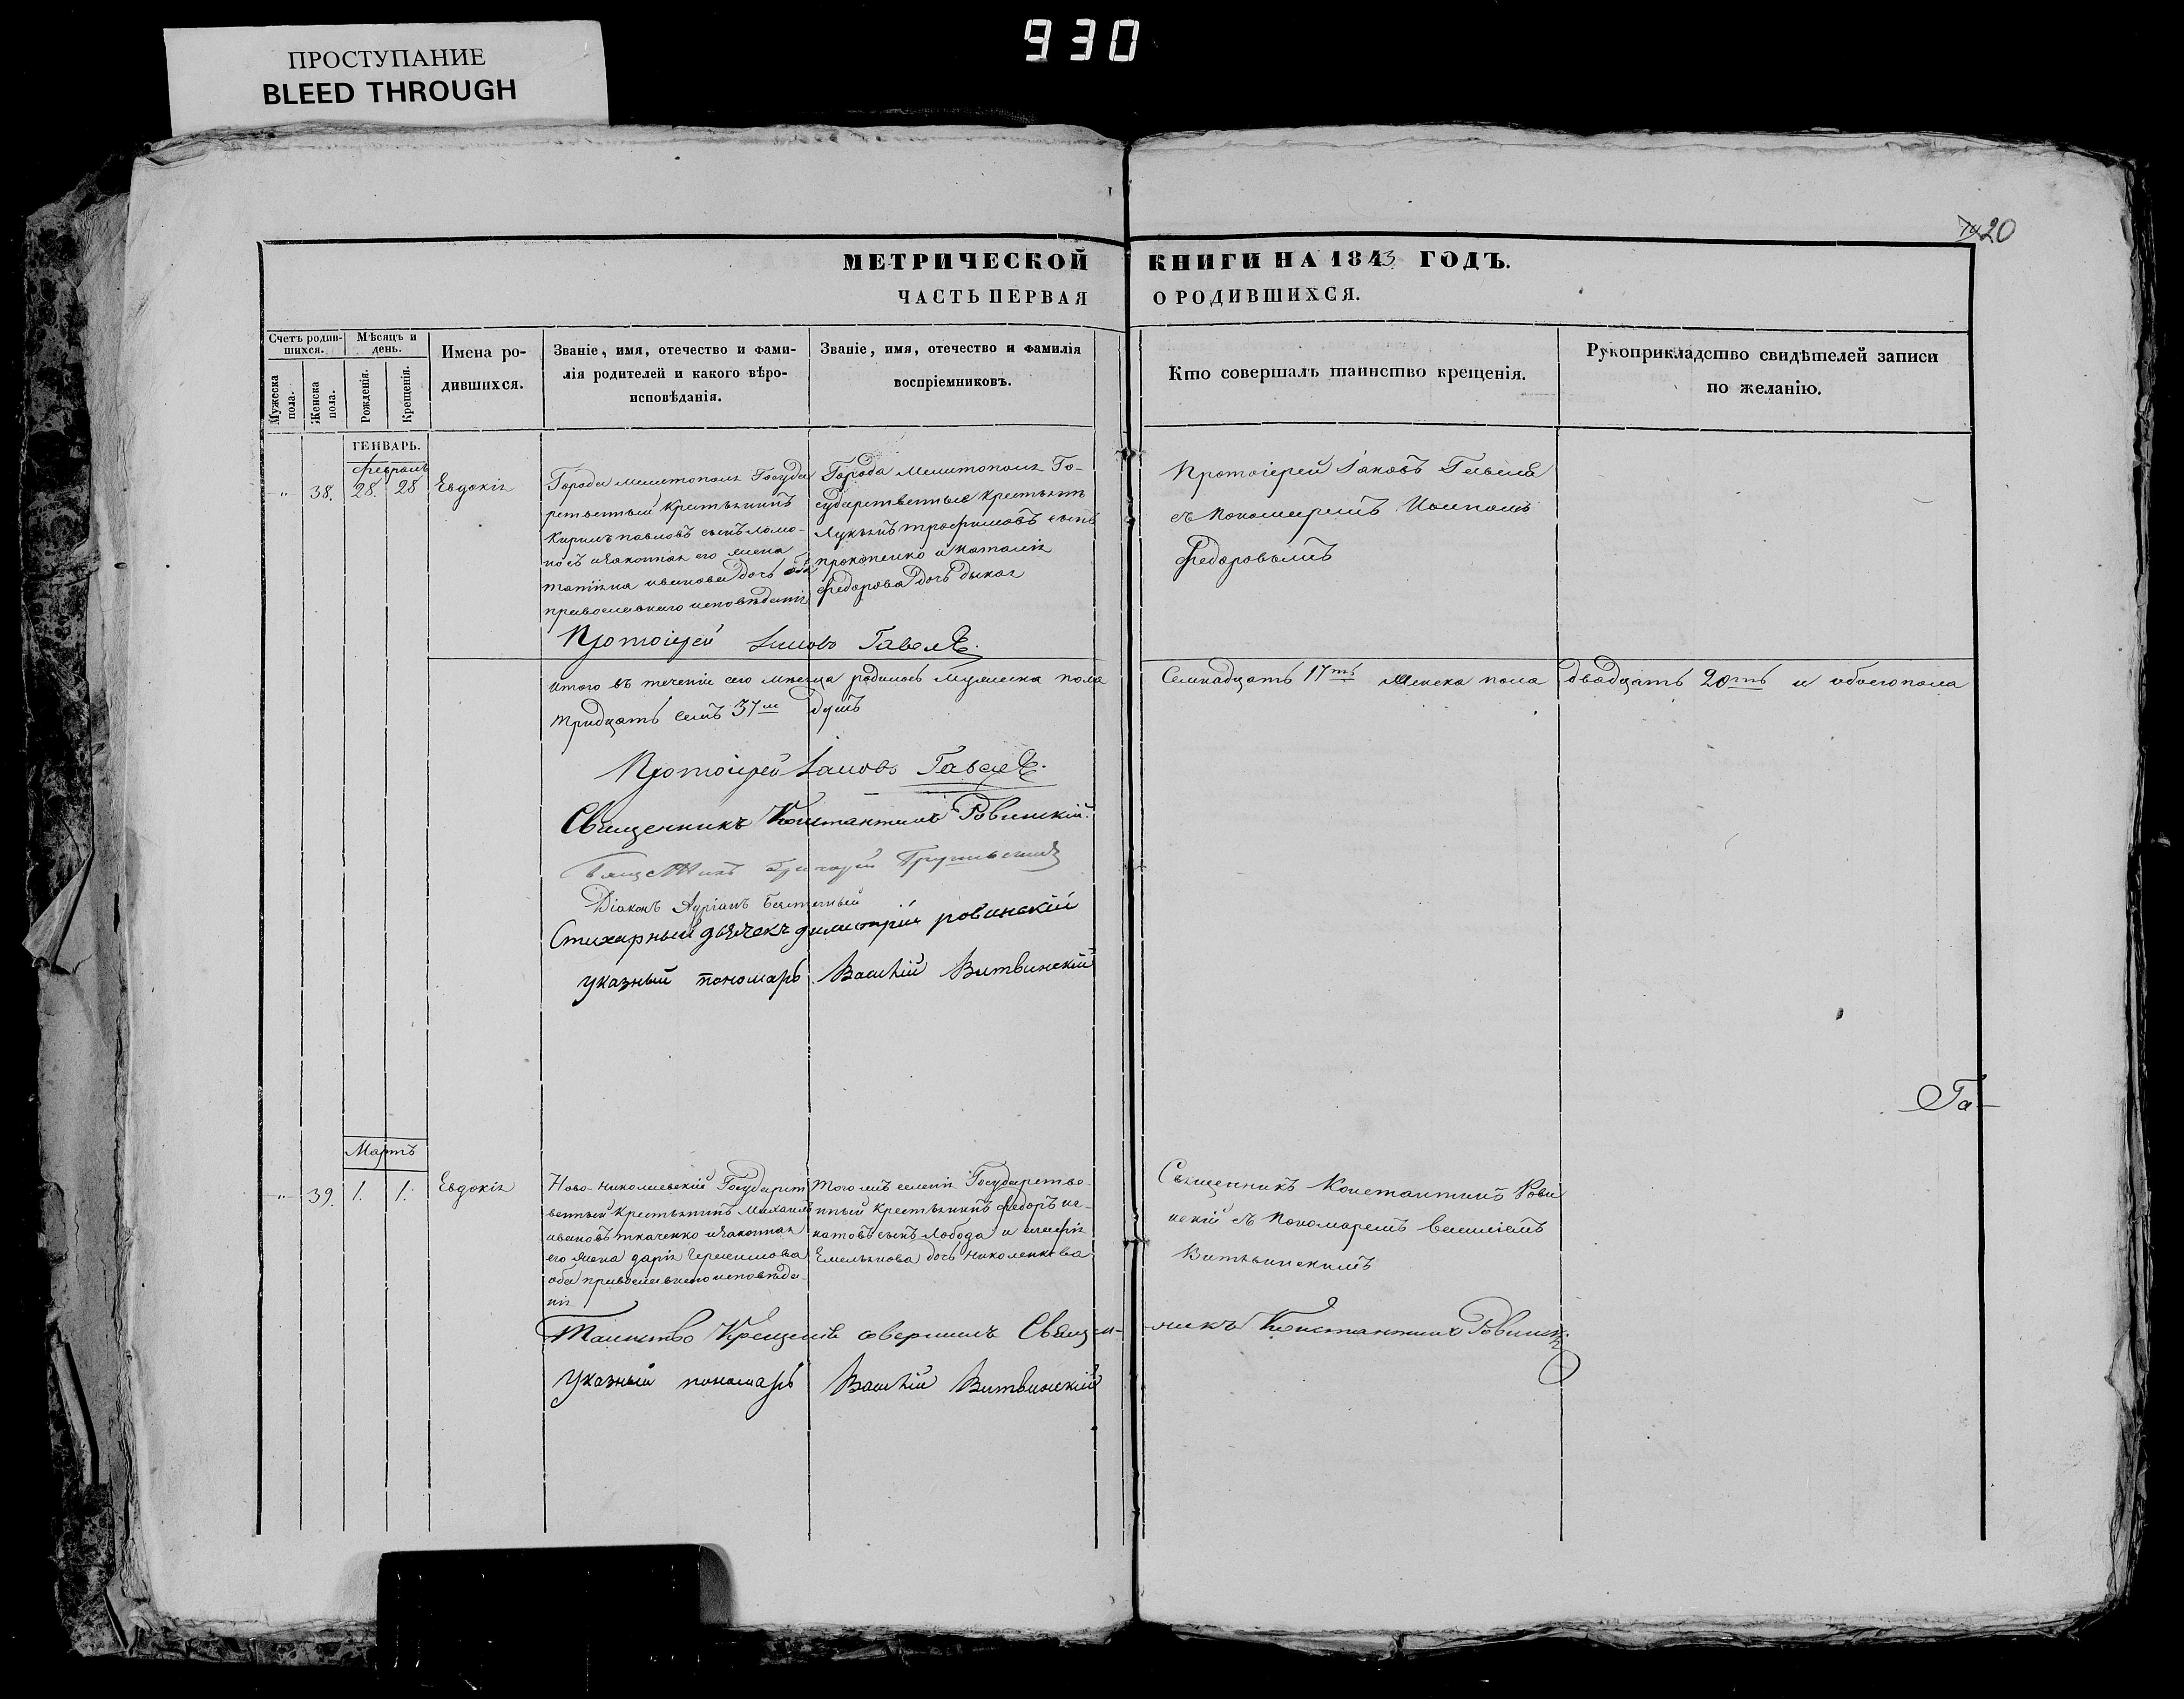 930
ПРОСТУПАНИЕ
BLEED THROUGH
20
МЕТРИЧЕСКОЙ КНИГИ НА 1843 ГОДЪ.
ЧАСТЬ ПЕРВАЯ О РОДИВШИХСЯ.
Счетъ родив-
шихся.
Мужеска
пола.
Женска
пола.
Мѣсяцъ и
день.
Рожденія.
Крещенія.
Имена ро-
дившихся.
Званіе, имя, отечество и фами-
лія родителей и какого вѣро-
исповѣданія.
Званіе, имя, отечество и фамилія
воспріемниковъ.
Кто совершалъ таинство крещенія.
Рукоприкладство свидѣтелей записи
по желанію.
ГЕНВАРЬ.
Февраль
38. 28. 28 Евдокія
Города Мелитополя Госуда
рственный крестьянинъ
Кирилъ павловъ сынъ ломо-
носъ и законная его жена
татіяна иванова дочь оба
православнаго исповѣданія
Города Мелитополя Го-
сударственные крестьяне
Лукьянъ трофимовъ сынъ
прокопенко и наталія
федорова дочь дикая
Протоіерей Іаковъ Гавеля
съ пономаремъ
федоровымъ
Протоіерей Іаковъ Гавеля.
Итого въ теченіи сего мѣсяца родилось мужеска пола Семнадцать 17ть женска пола двадцать 20ть и обоего пола
тридцать семъ 37м душъ
Протоіерей Іаковъ Гавеля.
Священникъ Константинъ Ровинскій.
Священникъ Григорій
Діаконъ
Стихарный дьячекъ димитрій ровинскій
указный пономарь Василій Витвинскій
Га-
Мартъ
39. 1. 1. Евдокія
Ново-николаевскій Государст
венный крестьянинъ Михаилъ
ивановъ ткаченко и законная
его жена дарія Герасимова
оба православнаго исповѣда-
нія
Того жъ селенія Государстве-
нный крестьянинъ федоръ иг-
натовъ сынъ Лобода и
Емельянова дочь николенкова
Священникъ Константинъ Рови
нскій съ пономаремъ василіемъ
Витвинскимъ
Таинство Крещенія совершилъ Священ-никъ Константинъ Ровинскій
Указный пономарь Василій Витвинскій